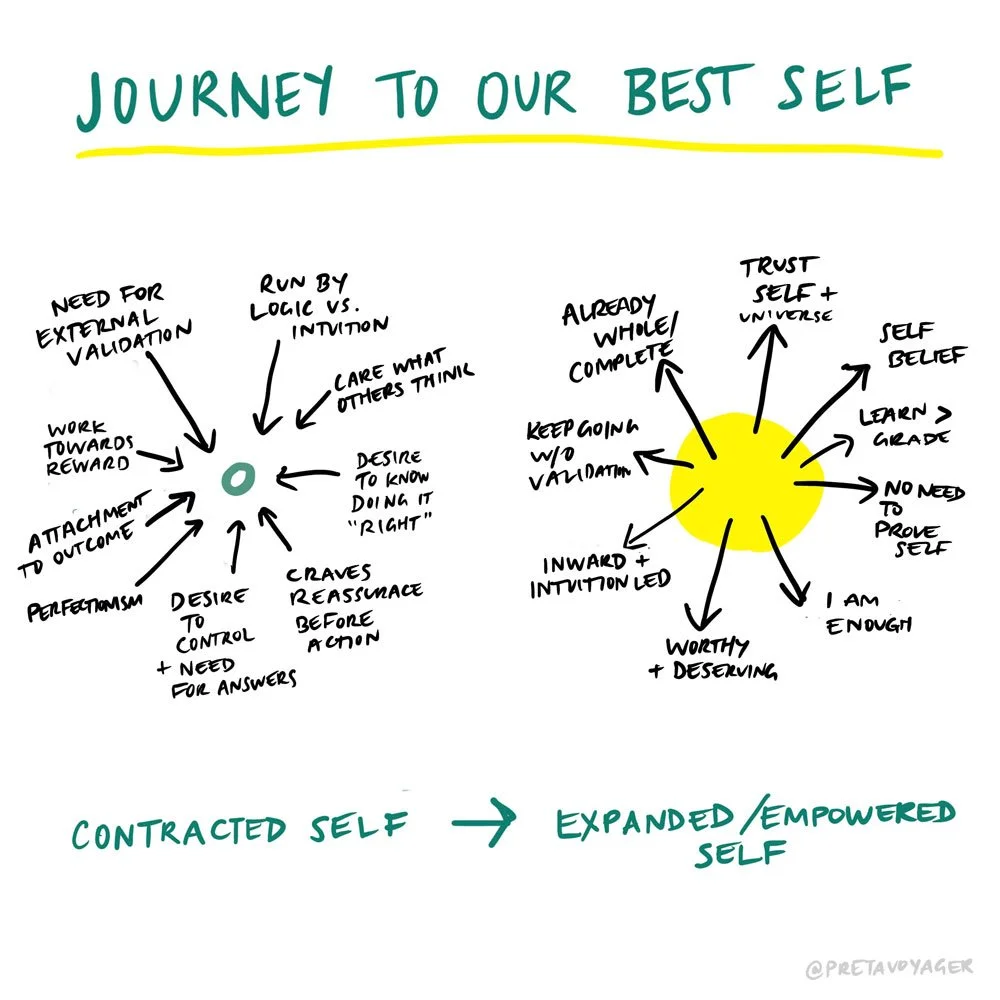 JOURNEY TO OUR BEST SELF
NEED FOR
EXTERNAL
VALIDATION
RUN BY
LOGIC VS.
INTUITION
CARE WHAT
OTHERS THINK
WORK
TOWARDS
REWARD
DESIRE
TO KNOW
DOING IT
"RIGHT"
ATTACHMENT
TO OUTCOME
PERFECTIONISM
DESIRE
TO
CONTROL
+ NEED
FOR ANSWERS
CRAVES
REASSURACE
BEFORE
ACTION
ALREADY
WHOLE/
COMPLETE
TRUST
SELF +
UNIVERSE
SELF
BELIEF
LEARN >
GRADE
KEEP GOING
W/O
VALIDATION
NO NEED
TO
PROVE
SELF
INWARD +
INTUITION LED
I AM
ENOUGH
WORTHY
+ DESERVING
CONTRACTED SELF → EXPANDED/EMPOWERED
SELF
@PRETAVOYAGER